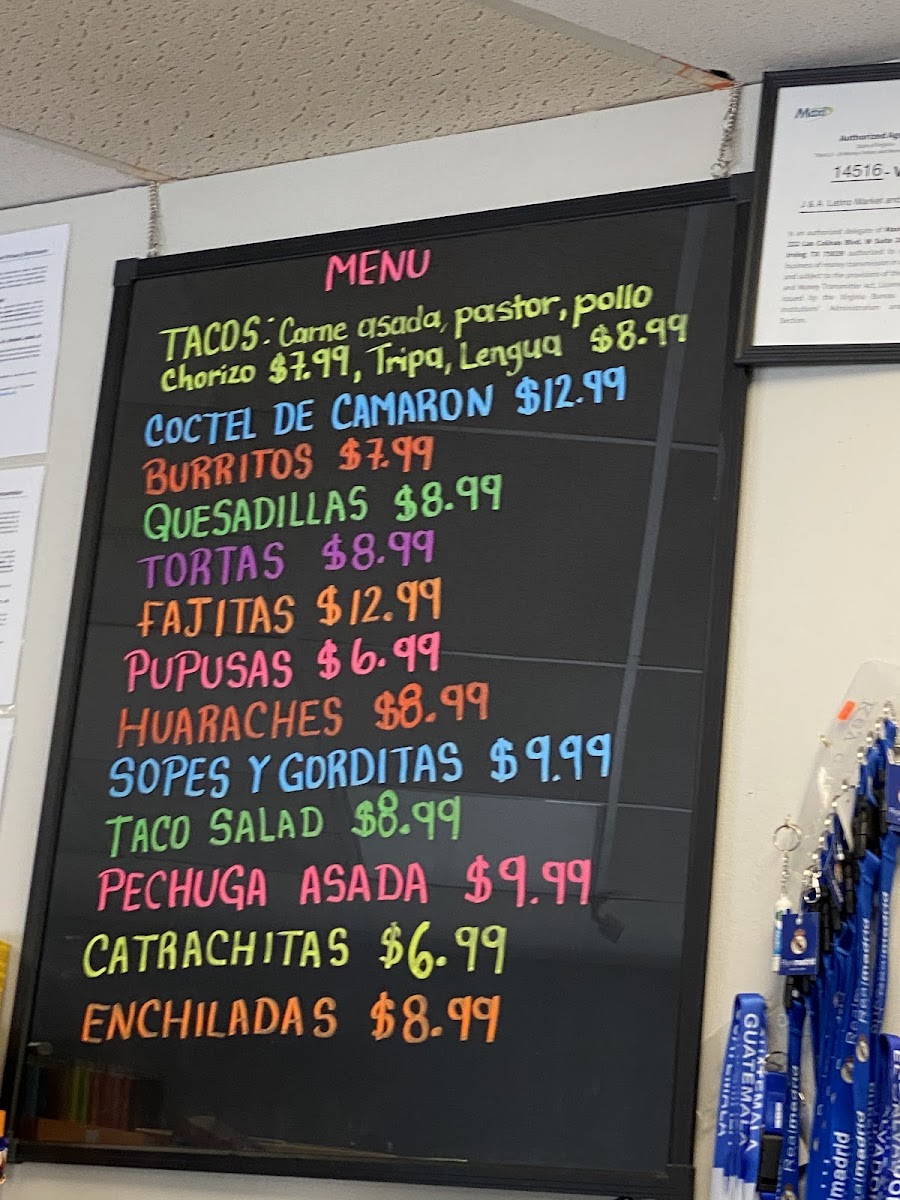 MENU
TACOS: Carne asada, pastor, pollo
Chorizo $7.99, Tripa, Lengua $8.99
COCTEL DE CAMARON $12.99
BURRITOS $7.99
QUESADILLAS $8.99
TORTAS $8.99
FAJITAS $12.99
PUPUSAS $6.99
HUARACHES $8.99
SOPES Y GORDITAS $9.99
TACO SALAD $8.99
PECHUGA ASADA $9.99
CATRACHITAS $6.99
ENCHILADAS $8.99
Authorized
14516-
J & A Latino Market and
is an authorized delegate of
Irving TX
GUATEMALA
Realmadrid
Realmadrid
madrid